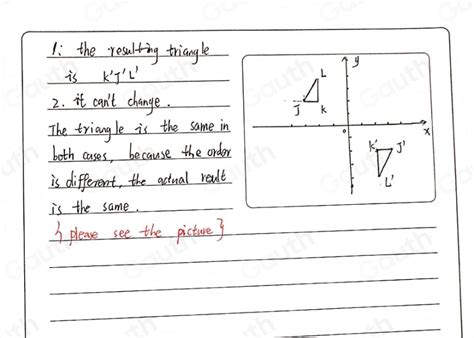 1: the resulting triangle
is K'J'L'
2. it can't change.
The triangle is the same in
both cases, because the order
is different, the actual reult
is the same.
{please see the picture}
y
L
J
K
o
x
K'
J'
L'
Gauth
Gauth
Gauth
Gauth